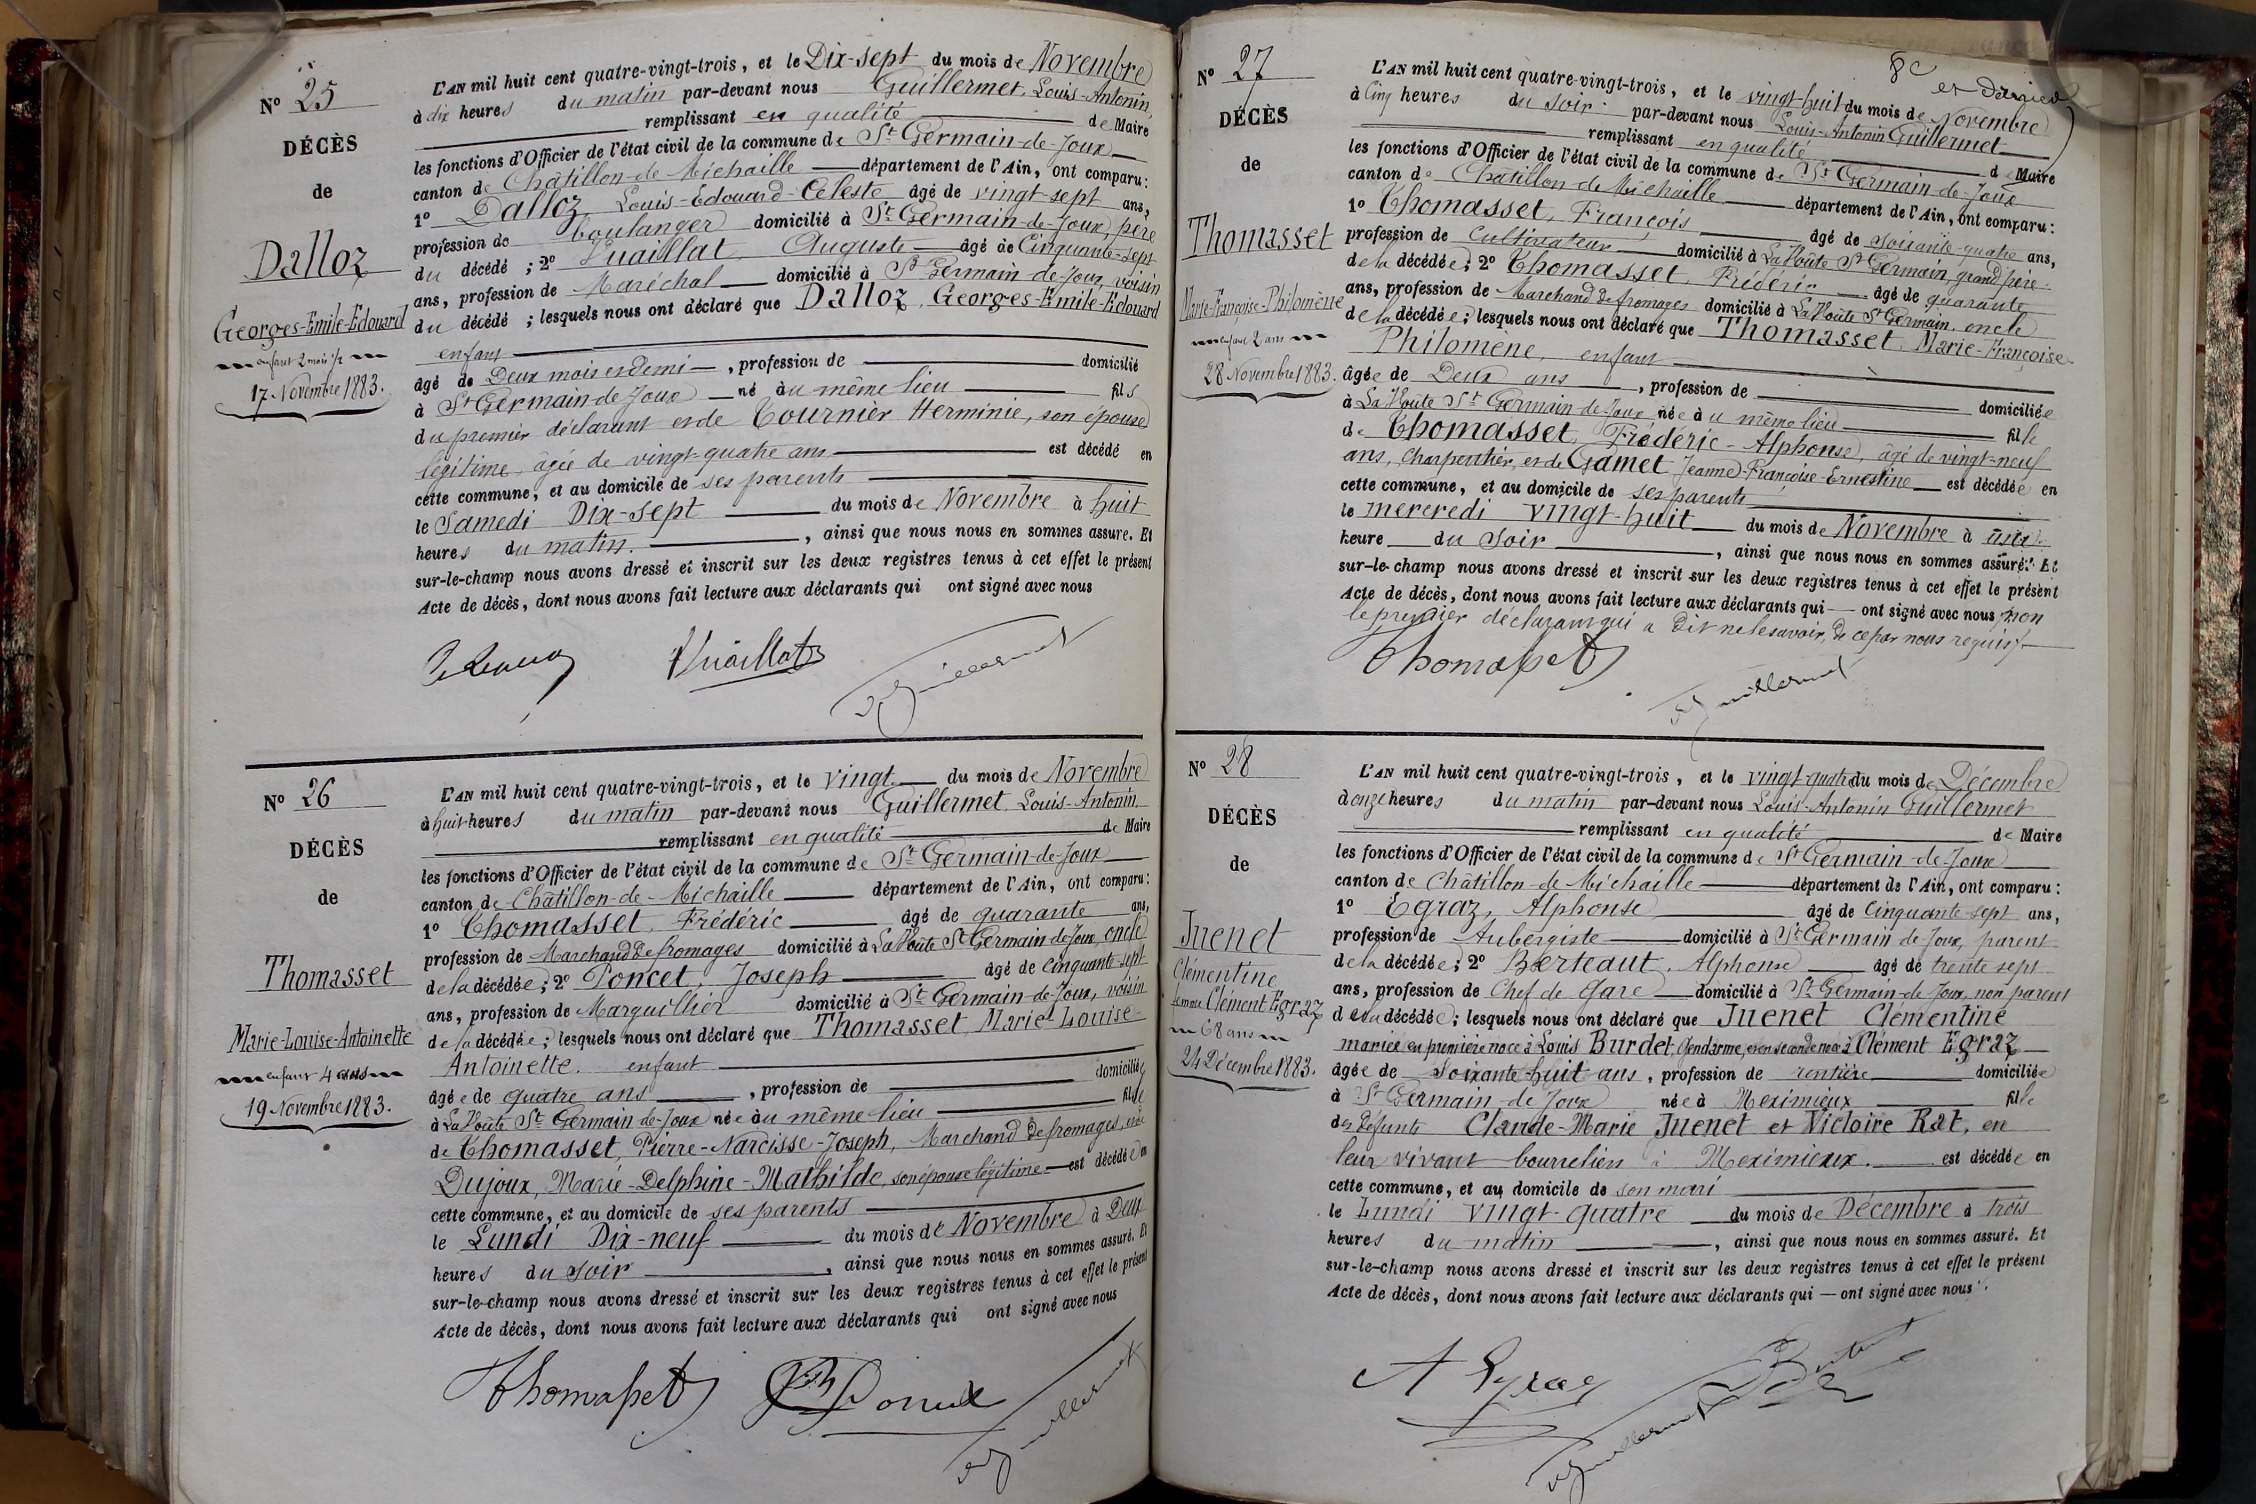 Nº 25
DÉCÈS
de
Dalloz
Georges-Emile-Edouard
enfant 2 mois ½
17 Novembre 1883.
L'AN mil huit cent quatre-vingt-trois, et le Dix-sept du mois de Novembre
à dix heures du matin par-devant nous Guillermet, Louis-Antonin,
remplissant en qualité de Maire
les fonctions d'Officier de l'état civil de la commune de St Germain-de-Joux
canton de Châtillon-de-Michaille département de l'Ain, ont comparu:
1º Dalloz, Louis-Edouard-Céleste âgé de vingt-sept ans,
profession de boulanger domicilié à St Germain-de-Joux, père
du décédé; 2º Vuaillat, Auguste âgé de Cinquante-sept
ans, profession de Maréchal domicilié à St Germain-de-Joux, voisin
du décédé; lesquels nous ont déclaré que Dalloz, Georges-Emile-Edouard
enfant
âgé de Deux mois et demi, profession de domicilié
à St Germain-de-Joux né au même lieu fils
du premier déclarant et de Tournier Herminie, son épouse
légitime âgée de vingt-quatre ans est décédé en
cette commune, et au domicile de ses parents
le Samedi Dix-sept du mois de Novembre à huit
heures du matin, ainsi que nous nous en sommes assuré. Et
sur-le-champ nous avons dressé et inscrit sur les deux registres tenus à cet effet le présent
Acte de décès, dont nous avons fait lecture aux déclarants qui ont signé avec nous
Vuaillat Guillermet
Nº 26
DÉCÈS
de
Thomasset
Marie-Louise-Antoinette
enfant 4 ans
19 Novembre 1883.
L'AN mil huit cent quatre-vingt-trois, et le vingt du mois de Novembre
à huit heures du matin par-devant nous Guillermet Louis-Antonin,
remplissant en qualité de Maire
les fonctions d'Officier de l'état civil de la commune de St Germain-de-Joux
canton de Châtillon-de-Michaille département de l'Ain, ont comparu:
1º Thomasset, Frédéric âgé de quarante ans,
profession de Marchand de fromages domicilié à La Voûte St Germain de Joux, oncle
de la décédée; 2º Poncet, Joseph âgé de cinquante-sept
ans, profession de Marguillier domicilié à St Germain-de-Joux, voisin
de la décédée; lesquels nous ont déclaré que Thomasset Marie Louise-
Antoinette. enfant
âgée de quatre ans, profession de domiciliée
à La Voûte St Germain-de-Joux née au même lieu fille
de Thomasset, Pierre-Narcisse-Joseph, Marchand de fromages, et de
Dujoux, Marie-Delphine-Mathilde, son épouse légitime est décédée en
cette commune, et au domicile de ses parents
le Lundi Dix-neuf du mois de Novembre à Deux
heures du soir, ainsi que nous nous en sommes assuré. Et
sur-le-champ nous avons dressé et inscrit sur les deux registres tenus à cet effet le présent
Acte de décès, dont nous avons fait lecture aux déclarants qui ont signé avec nous
Thomasset Poncet Guillermet
8e et dernier
Nº 27
DÉCÈS
de
Thomasset
Marie-Françoise-Philomène
enfant 2 ans
28 Novembre 1883.
L'AN mil huit cent quatre-vingt-trois, et le vingt-huit du mois de Novembre
à Cinq heures du soir par-devant nous Louis-Antonin Guillermet
remplissant en qualité de Maire
les fonctions d'Officier de l'état civil de la commune de St Germain-de-Joux
canton de Châtillon-de-Michaille département de l'Ain, ont comparu:
1º Thomasset, François âgé de soixante-quatre ans,
profession de Cultivateur domicilié à La Voûte St Germain, grand père
de la décédée; 2º Thomasset, Frédéric âgé de quarante
ans, profession de Marchand de fromages domicilié à La Voûte St Germain, oncle
de la décédée; lesquels nous ont déclaré que Thomasset, Marie-Françoise-
Philomène, enfant
âgée de Deux ans, profession de domiciliée
à La Voute St Germain-de-Joux née au même lieu fille
de Thomasset, Frédéric-Alphonse, âgé de vingt-neuf
ans, Charpentier, et de Gamet Jeanne-Françoise-Ernestine est décédée en
cette commune, et au domicile de ses parents
le mercredi vingt-huit du mois de Novembre à une
heure du soir, ainsi que nous nous en sommes assuré. Et
sur-le-champ nous avons dressé et inscrit sur les deux registres tenus à cet effet le présent
Acte de décès, dont nous avons fait lecture aux déclarants qui ont signé avec nous non
le premier déclarant qui a dit ne le savoir, de ce par nous requis
Thomasset Guillermet
Nº 28
DÉCÈS
de
Juenet
Clémentine
femme Clément Egraz
68 ans
24 Décembre 1883.
L'AN mil huit cent quatre-vingt-trois, et le vingt-quatre du mois de Décembre
à onze heures du matin par-devant nous Louis-Antonin Guillermet
remplissant en qualité de Maire
les fonctions d'Officier de l'état civil de la commune de St Germain-de-Joux
canton de Châtillon-de-Michaille département de l'Ain, ont comparu:
1º Egraz, Alphonse âgé de Cinquante-sept ans,
profession de Aubergiste domicilié à St Germain de Joux, parent
de la décédée; 2º Berteaut, Alphonse âgé de trente sept
ans, profession de Chef de gare domicilié à St Germain-de-Joux, non parent
de la décédée; lesquels nous ont déclaré que Juenet Clémentine
mariée en première noce à Louis Burdet, Gendarme, et en seconde noce à Clément Egraz
âgée de Soixante-huit ans, profession de rentière domiciliée
à St Germain-de-Joux née à Meximieux fille
des défunts Claude-Marie Juenet et Victoire Rat, en
leur vivant bourreliers à Meximieux. est décédée en
cette commune, et au domicile de son mari
le Lundi vingt-quatre du mois de Décembre à trois
heures du matin, ainsi que nous nous en sommes assuré. Et
sur-le-champ nous avons dressé et inscrit sur les deux registres tenus à cet effet le présent
Acte de décès, dont nous avons fait lecture aux déclarants qui ont signé avec nous.
A Egraz Guillermet